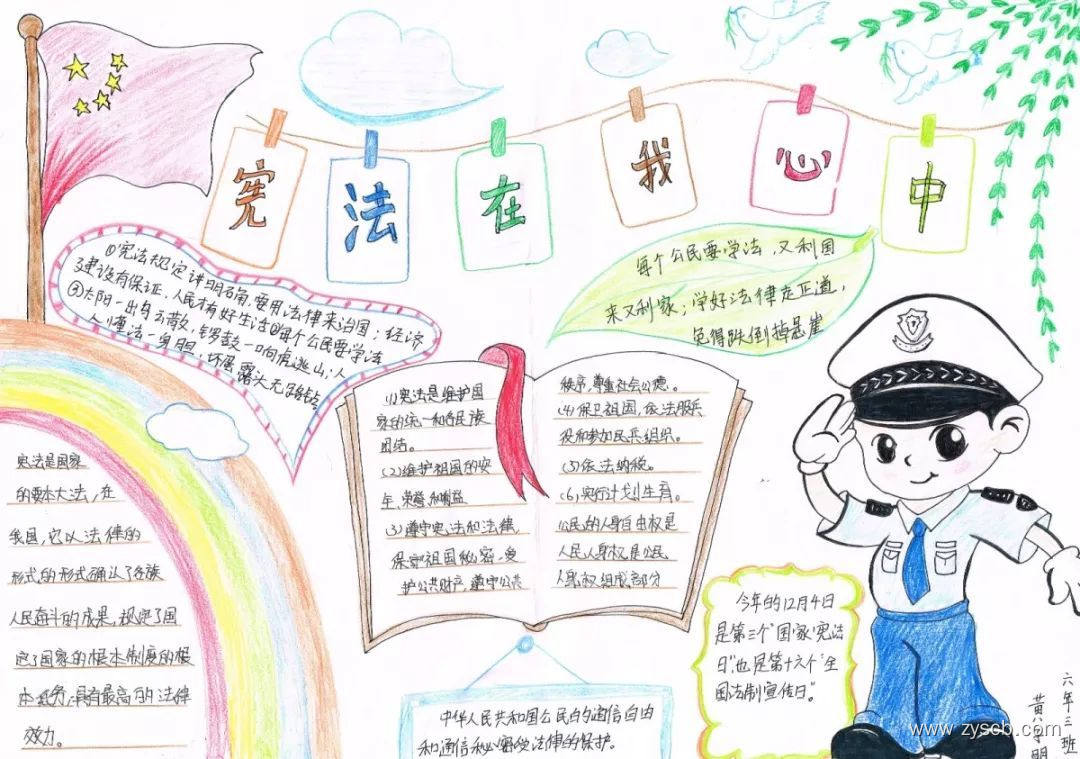 宪法在我心中
①宪法规定讲明确,要用法律来治国;经济
建设有保证,人民才有好生活②每个公民要学法
③太阳一出乌云散,锣鼓一响虎逃山;人
人懂法一身胆,坏蛋露头无路钻。
每个公民要学法,又利国
来又利家;学好法律走正道,
免得跌倒掉悬崖
宪法是国家
的根本大法,在
我国,它以法律的
形式的形式确认了各族
人民奋斗的成果,规定了国
家的根本制度的根
本任务,具有最高的法律
效力。
(1)宪法是维护国
家的统一和各民族
团结。
(2)维护祖国的安
全、荣誉和利益
(3)遵守宪法和法律,
保守祖国秘密,爱
护公共财产,遵守公共
秩序,尊重社会公德。
(4)保卫祖国,依法服兵
役和参加民兵组织。
(5)依法纳税。
(6)实行计划生育。
公民的人身自由权是
人民人身权是公民
人身权组成部分
今年的12月4日
是第三个“国家宪法
日”也是第十六个“全
国法制宣传日”。
中华人民共和国公民的通信自由
和通信秘密受法律的保护。
六年三班
黄 明
www.zyscb.com